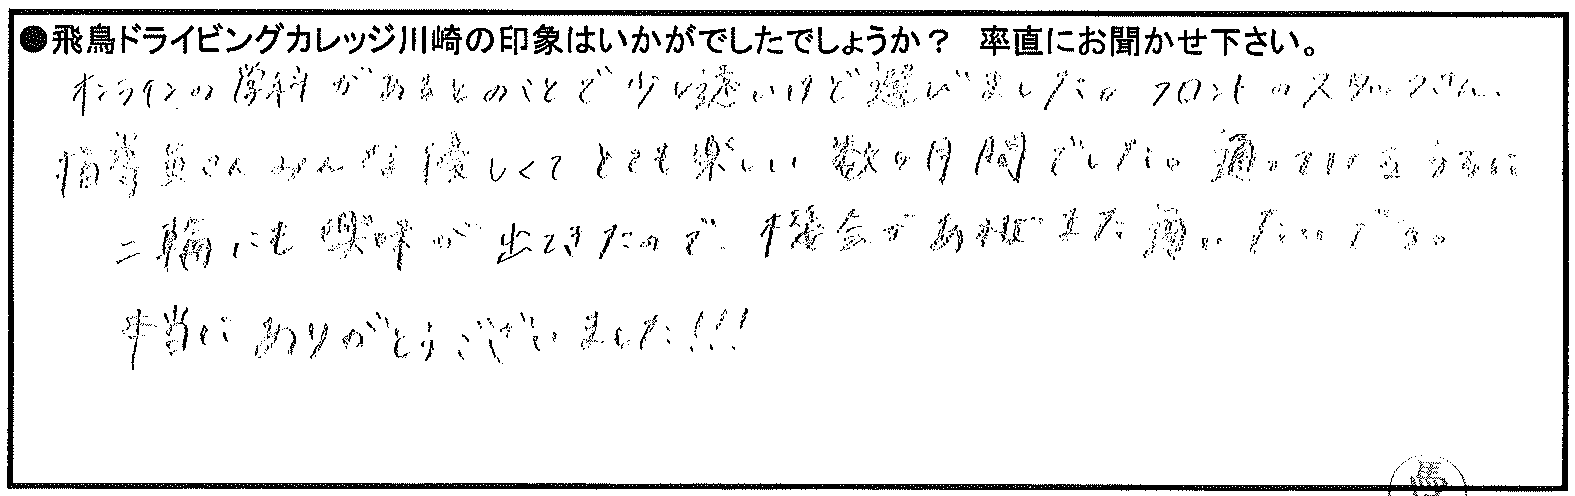 ●飛鳥ドライビングカレッジ川崎の印象はいかがでしたでしょうか？　率直にお聞かせ下さい。
オンラインの学科があるとのことで少し遠いけど選びました。フロントのスタッフさん、
指導員さんみんな優しくてとても楽しい数か月間でした。通っているうちに
二輪にも興味が出てきたので、機会があればまた通いたいです。
本当にありがとうございました!!!
馬